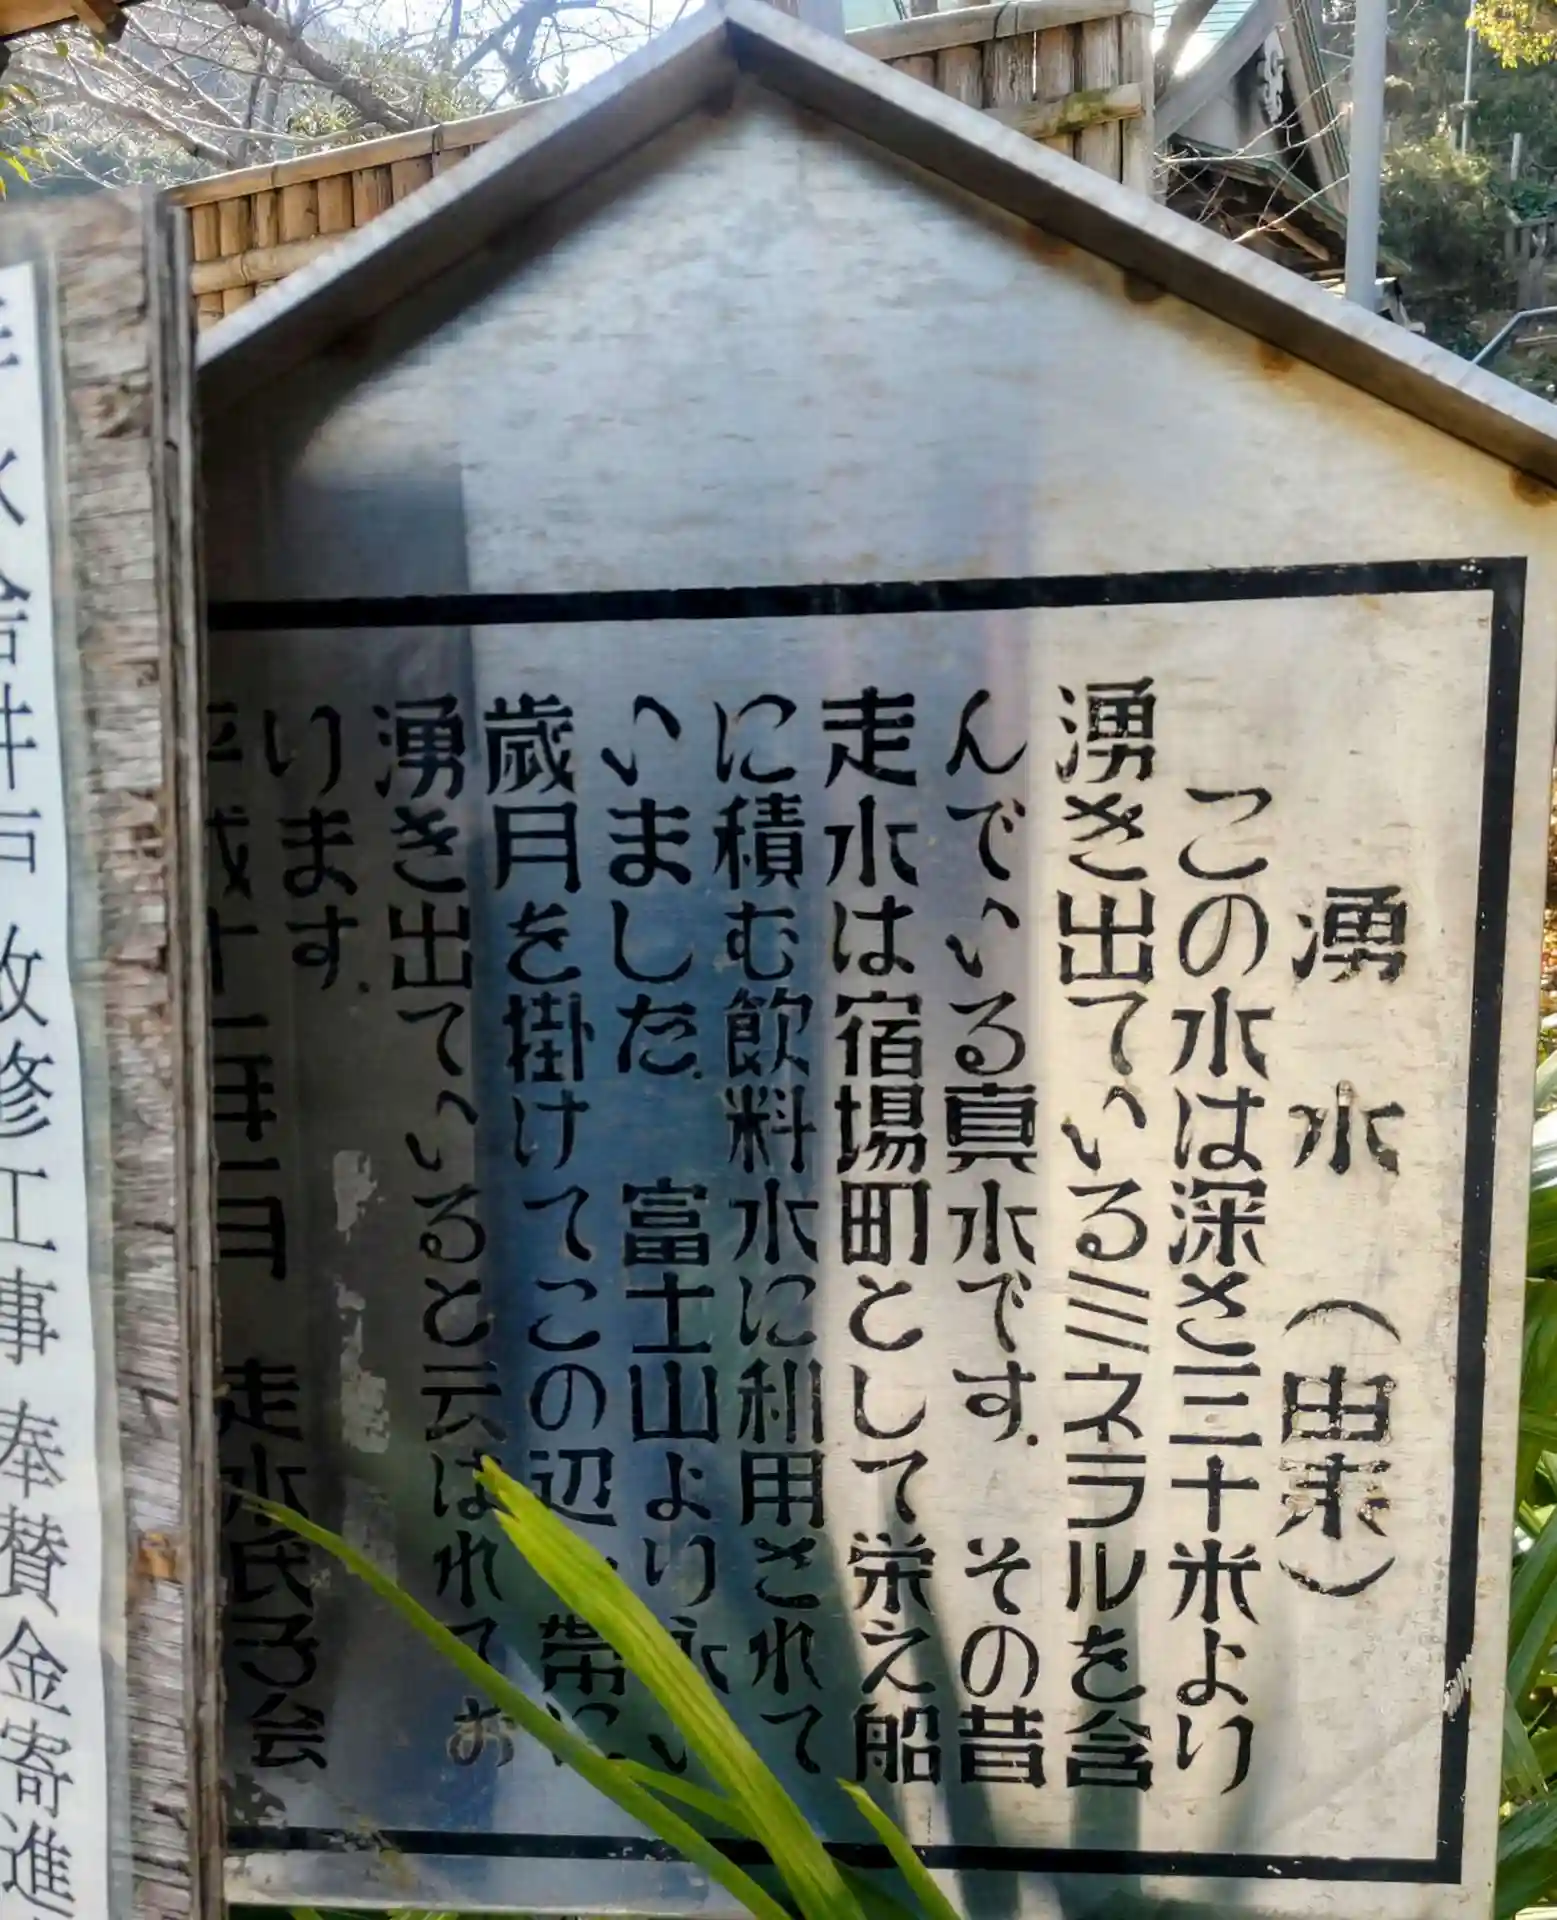 湧水(由来)
この水は深さ三十米より
湧き出ているミネラルを含
んでいる真水です。その昔
走水は宿場町として栄え船
に積む飲料水に利用されて
いました。富士山より永い
歳月を掛けてこの辺一帯に
湧き出ていると云はれてお
ります。
平成十二年二月 走水氏子会
手水舎井戸改修工事奉賛金寄進